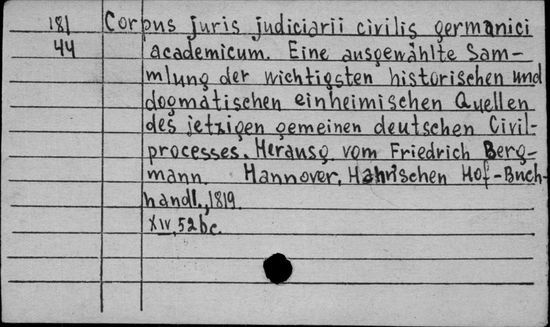 181 Corpus juris judiciarii civilis germanici
44 academicum. Eine ausgewählte Sam-
mlung der wichtigsten historischen und
dogmatischen einheimischen Quellen
des jetxigen gemeinen deutschen Civil-
processes. Herausg vom Friedrich Berg-
mann Hannover, Hahnischen Hof-Buch-
handl., 1819.
XIV, 52 bc.